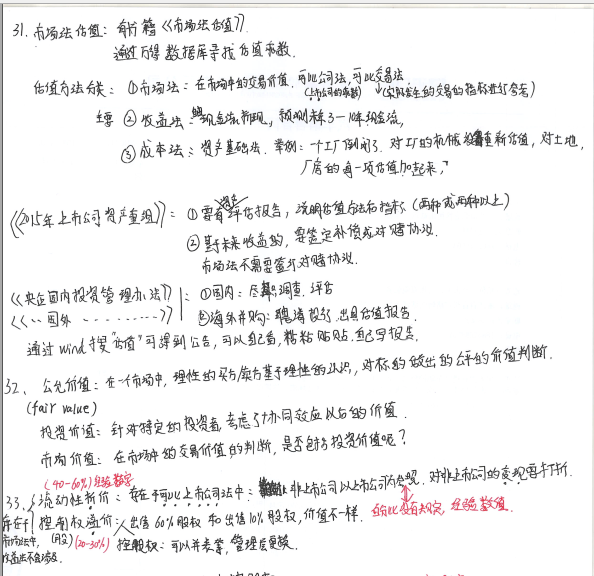 31. 市场法估值：有前篇《市场法估值》.
通过万得数据库寻找估值乘数.
估值方法分类：①市场法：在市场中的交易价值. 可比公司法, 可比交易法
(上市公司的乘数) (实际发生的交易的指标进行参考)
主要 ②收益法：现金流折现, 预测未来3-10年现金流,
③成本法：资产基础法. 举例：一个工厂倒闭了. 对工厂的机械设备重新估值, 对土地,
厂房的每一项估值加起来,
《2015年上市公司资产重组》：①要有资产评估报告, 说明估值方法和指标 (两种或两种以上)
②基于未来收益的, 要签定补偿或对赌协议.
市场法不需要签订对赌协议.
《央企国内投资管理办法》：①国内：尽职调查. 评估
《 〃 国外 ........》 ②海外并购：聘请投行, 出具估值报告.
通过wind搜"估值"可得到公告, 可以自己看, 粘粘贴贴, 自己写报告.
32、公允价值：在一个市场中, 理性的买方卖方基于理性的认识, 对标的做出的公平的价值判断.
(fair value)
投资价值：针对特定的投资者, 考虑了协同效应以后的价值.
市场价值：在市场中的交易价值的判断, 是否包括投资价值呢?
(40-60%)经验数字
33、流动性折价：存在于可比上市公司法中： 非上市公司以上市公司为参照. 对非上市公司的变现要打折.
控制权溢价：出售60%股权和出售10%股权, 价值不一样. 的比没有规定, 经验数值.
存在于
市场法中, (月殳) (20-30%) 控股权：可以并表, 管理层更换.
收益法不会涉及.